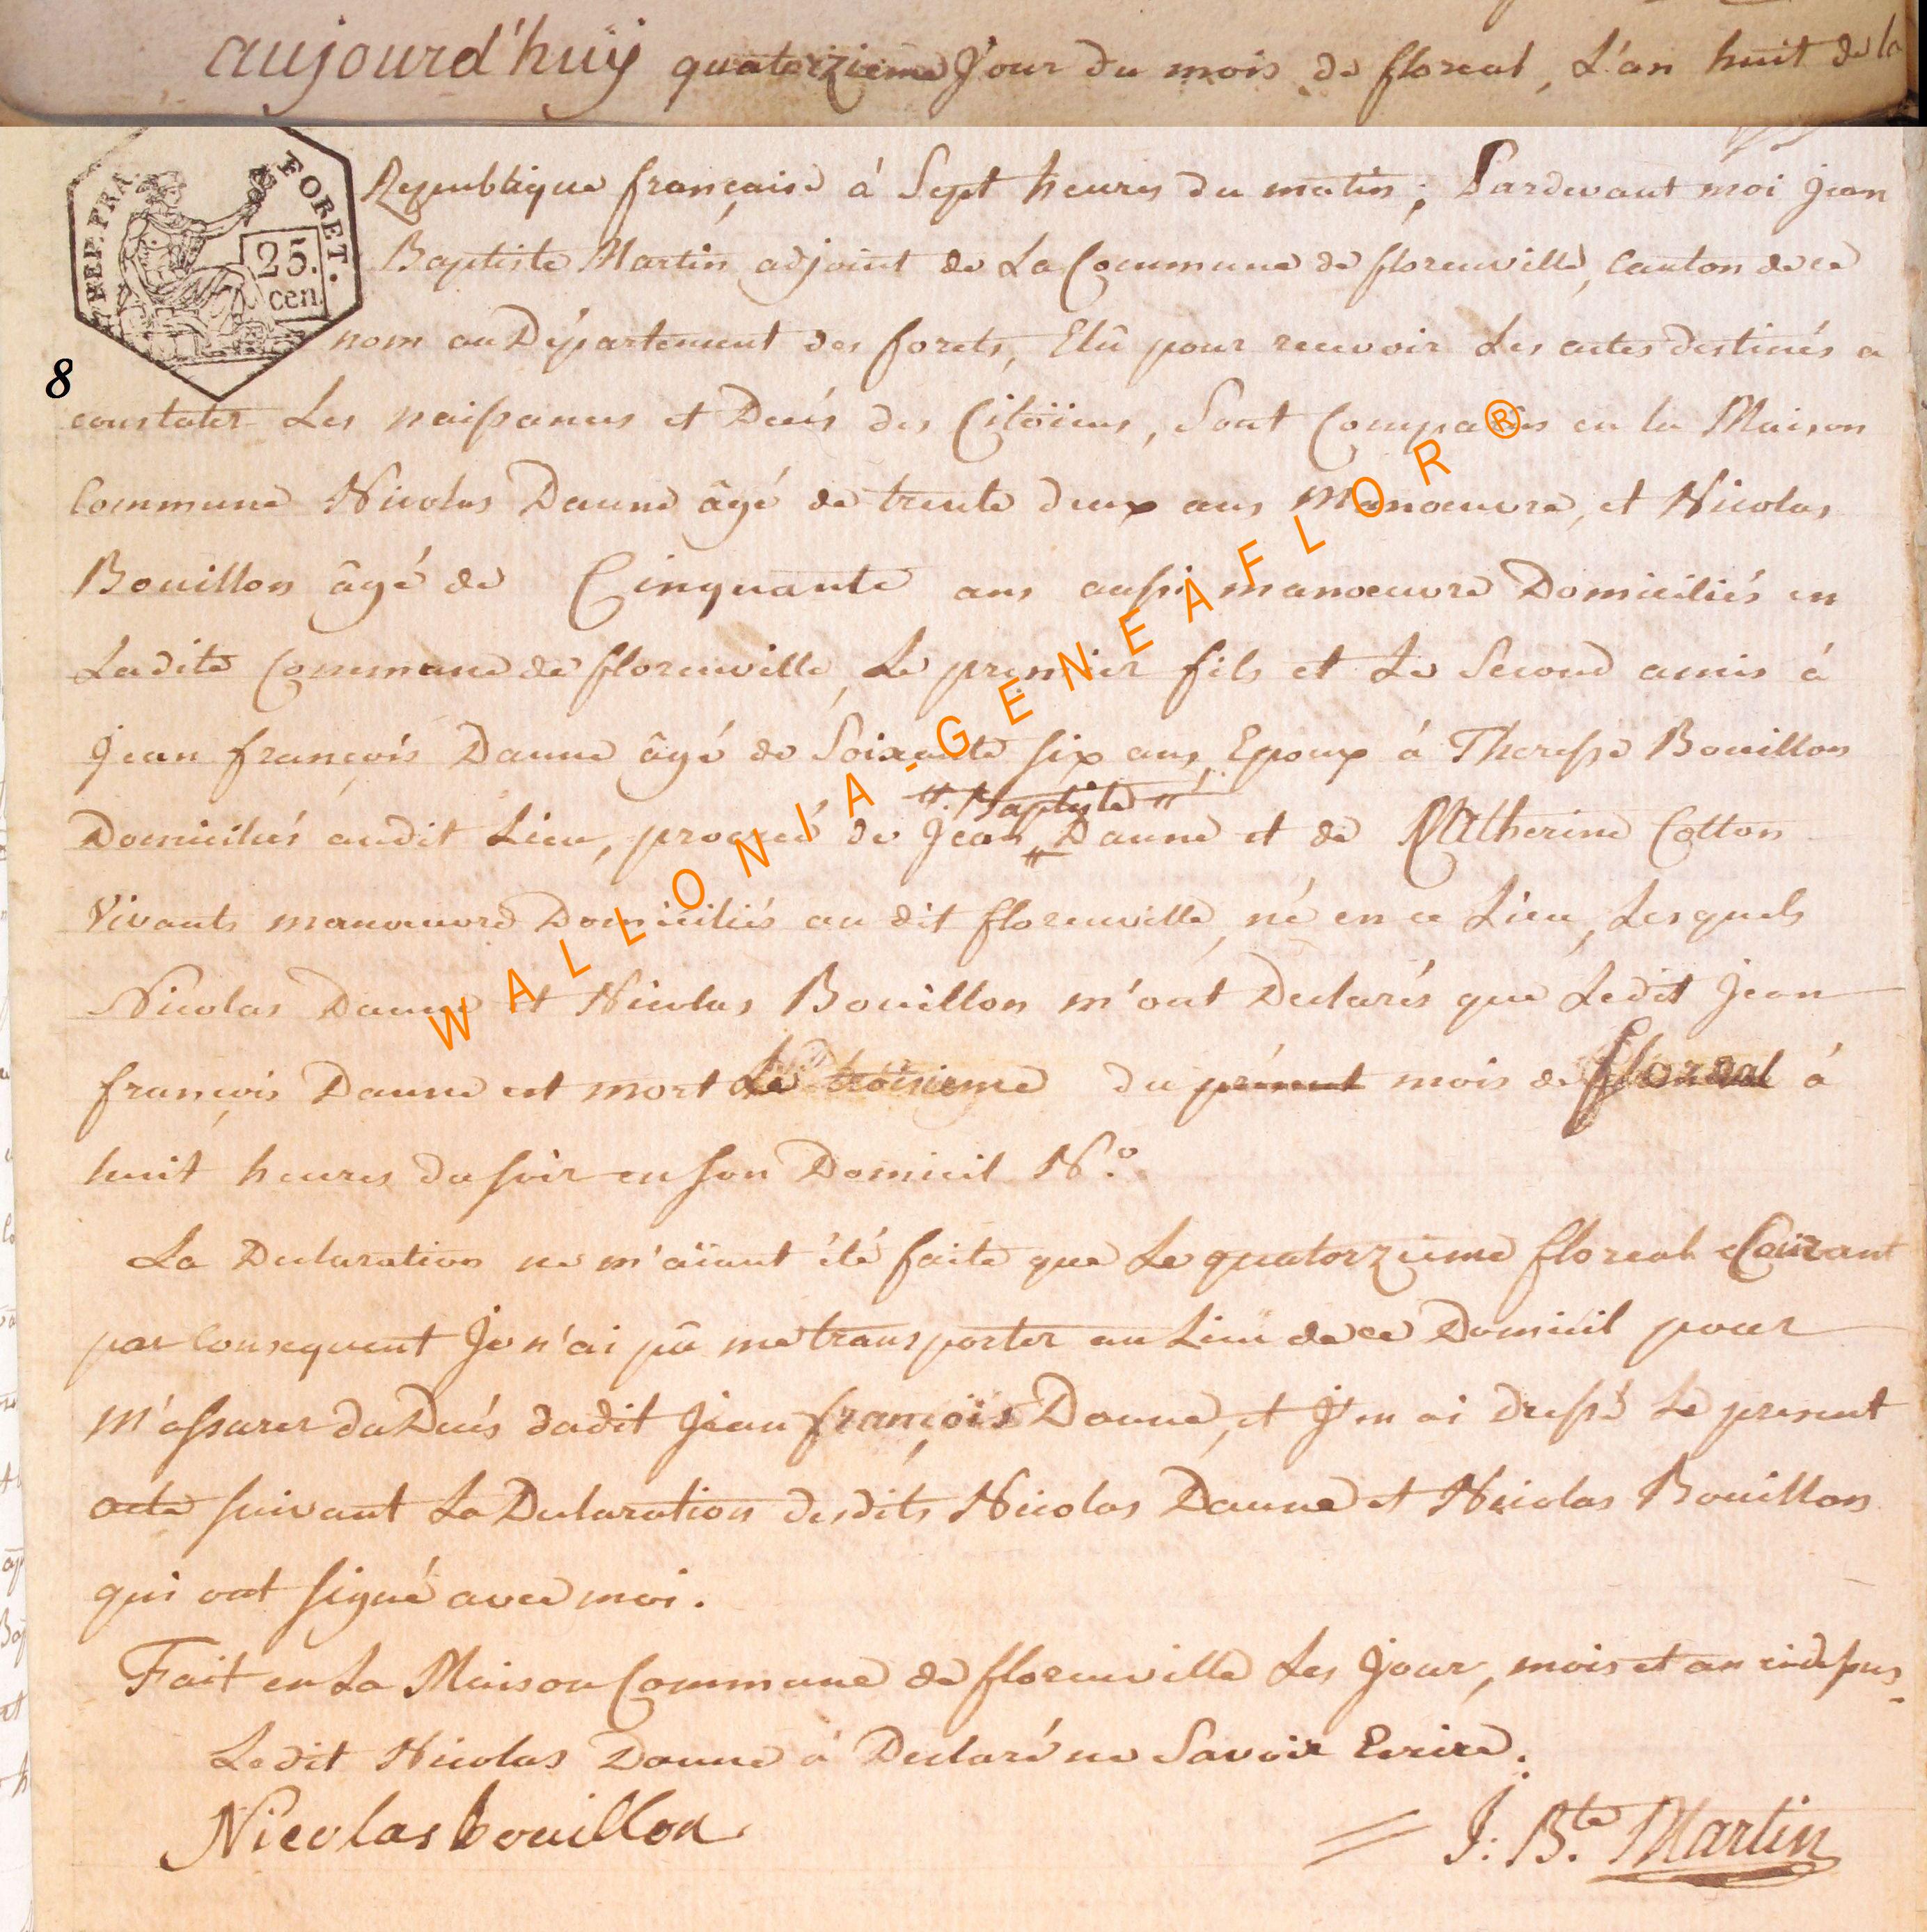 aujourd'huÿ quatorzieme Jour du mois de floreal, L'an huit de la
REP. FRA. FORET.
25.
cen
Republique française à Sept heures du matin; Pardevant moi Jean
Baptiste Martin adjoint de La Commune de florenville, Canton de ce
nom au Département des forets, Elû pour recevoir Les actes destinés a
8
constater Les naissances et Decés des Citöiens, Sont Comparus en la Maison
Commune Nicolas Daune âgé de trente deux ans Manoeuvre, et Nicolas
Bouillon âgé de Cinquante ans aussi manoeuvre Domiciliés en
Ladite Commune de florenville, Le premier fils et Le Second amis à
Jean françois Daune âgé de Soixante six ans, Epoux à Theresse Bouillon
" Baptiste "
Domiciliés audit Lieu, procréé de Jean " Daune et de Catherine Cotton
Vivants manoeuvre Domiciliés au dit florenville, né en ce Lieu, Lesquels
Nicolas Daune et Nicolas Bouillon m'ont Declarés que Ledit Jean
françois Daune est mort Le troisieme du présent mois de floréal à
huit heures du soir en son Domicil N.o
La Declaration ne m'aïant été faite que Le quatorzieme floreal Courant
par Consequent Je n'ai pû me transporter au Lieu de ce Domicil pour
M'assurer du Decés dudit Jean françois Daune, et J'en ai dressé Le present
acte suivant La Declaration desdits Nicolas Daune et Nicolas Bouillon
qui ont signé avec moi.
Fait en La Maison Commune de florenville Les Jour, mois et an cidessus.
Ledit Nicolas Daune à Declaré ne Savoir Ecrire.
Nicolas bouillon
J: B.te Martin
WALLONIA-GENEAFLOR®